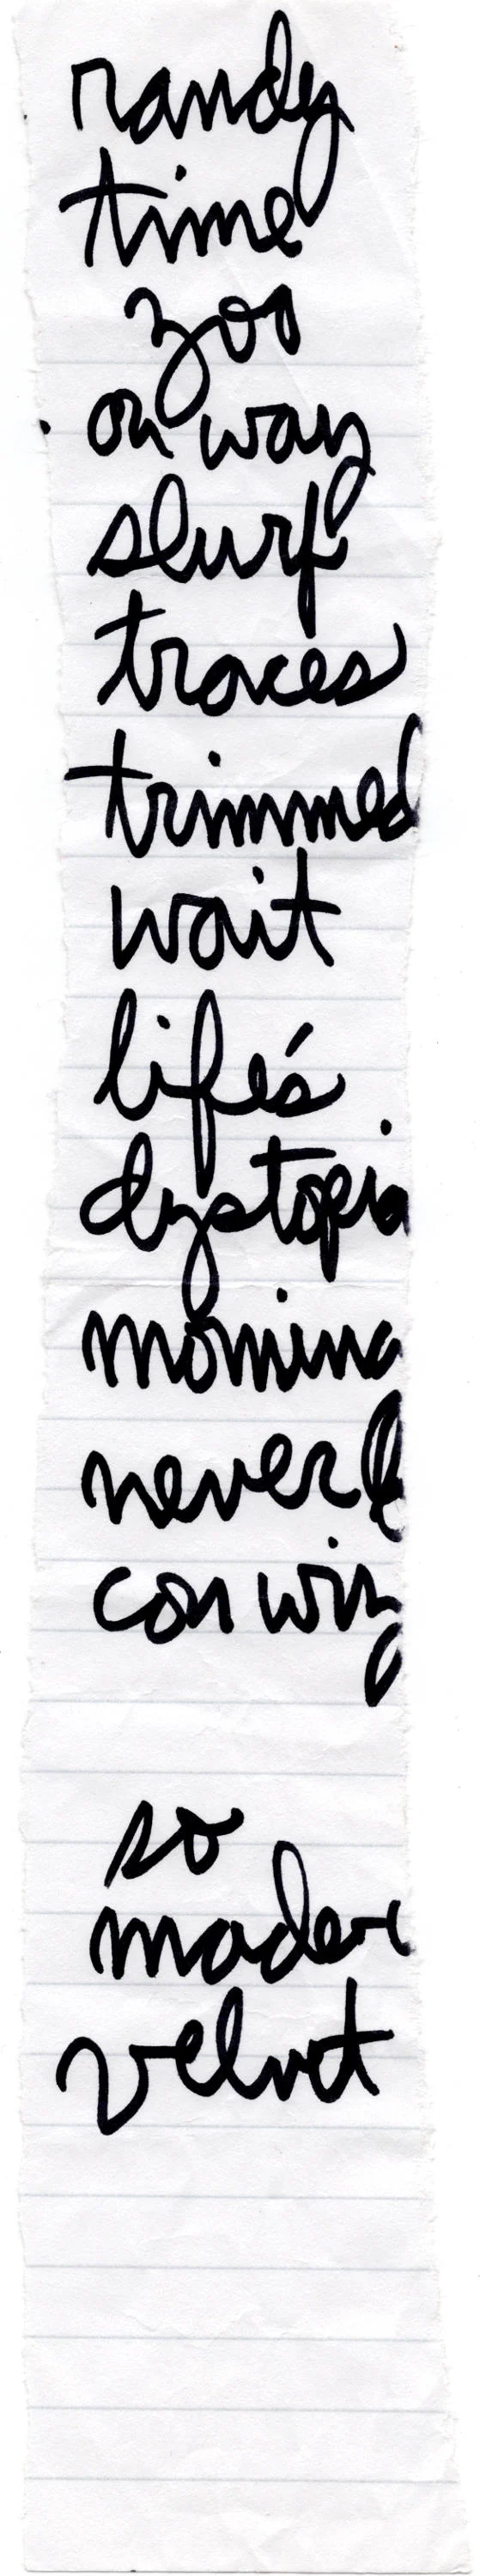 randy
time
zoo
on way
slurp
traces
trimmed
wait
life's
dystopia
morning
never
con wiz
so
moder
velvet